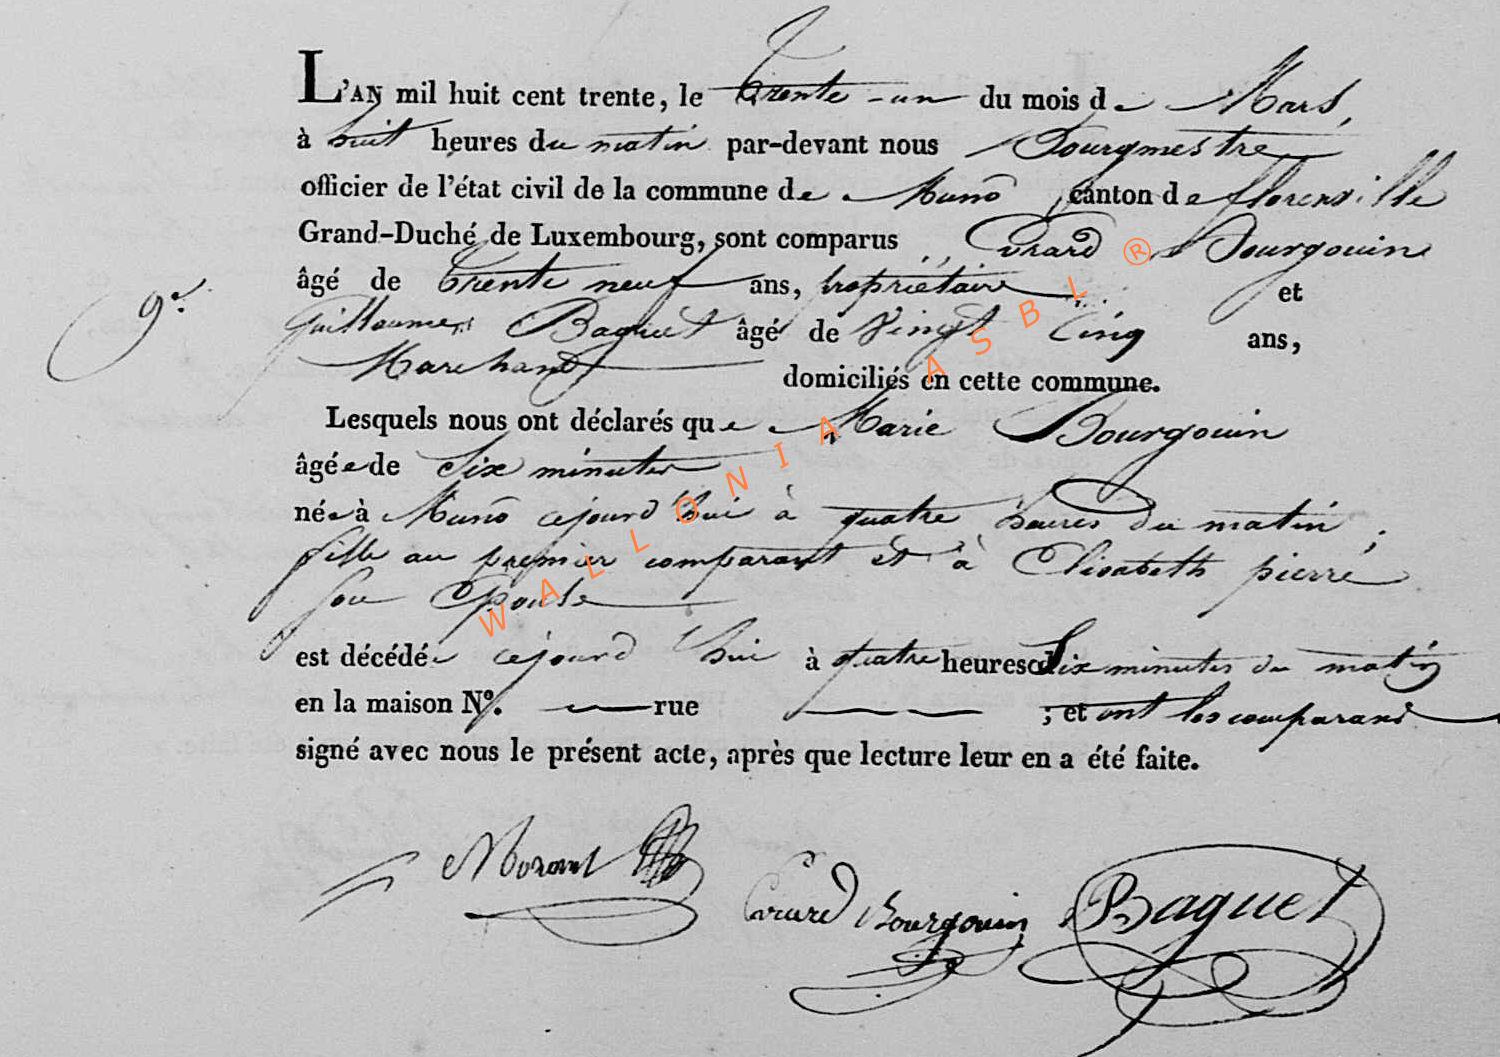 L'AN mil huit cent trente, le trente-un du mois de Mars,
à huit heures du matin par-devant nous Bourgmestre
officier de l'état civil de la commune de Muno canton de florenville
Grand-Duché de Luxembourg, sont comparus Evrard Bourgouin
âgé de trente neuf ans, propriétaire et
9e.
Guillaume Baguet âgé de Vingt Cinq ans,
Marchand domiciliés en cette commune.
Lesquels nous ont déclarés que Marie Bourgouin
âgée de Six minutes
née à Muno cejourd'hui à quatre heures du matin,
fille au premier comparant et à Elisabeth pierre
son Epouse
est décédée cejourd'hui à quatre heures Six minutes du matin
en la maison N°. rue ; et ont les comparans
signé avec nous le présent acte, après que lecture leur en a été faite.
Evrard Bourgouin Baguet
WALLONIA ASBL ®